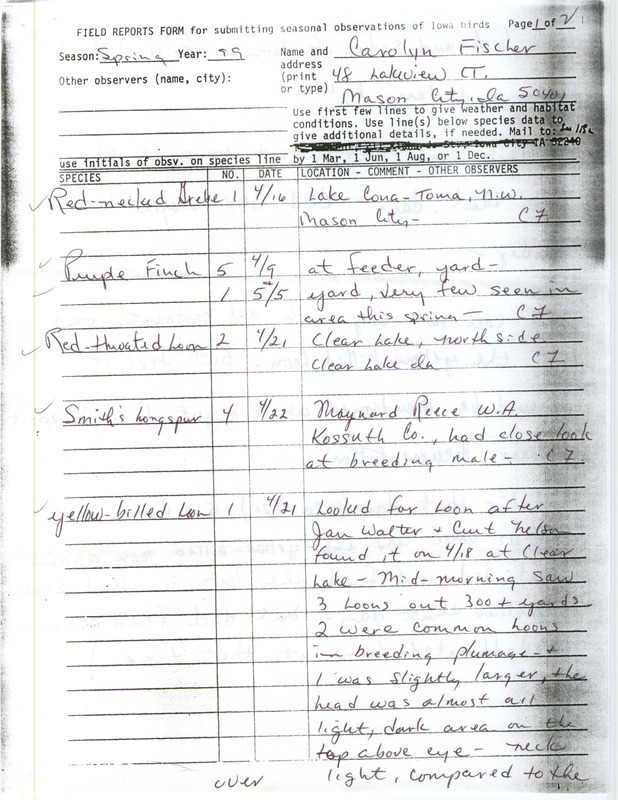 FIELD REPORTS FORM for submitting seasonal observations of Iowa birds Page 1 of 2
Season: Spring Year: 99 Name and Carolyn Fischer
address
Other observers (name, city): (print 48 Lakeview CT.
or type) Mason City, Ia 50401
Use first few lines to give weather and habitat
conditions. Use line(s) below species data to
give additional details, if needed. Mail to:
Iowa City IA 52240
use initials of obsv. on species line by 1 Mar, 1 Jun, 1 Aug, or 1 Dec.
SPECIES NO. DATE LOCATION - COMMENT - OTHER OBSERVERS
Red-necked Grebe 1 4/16 Lake Cona-Toma, N.W.
Mason City- CF
Purple Finch 5 4/9 at feeder, yard-
1 5/5 yard, very few seen in
area this spring- CF
Red-throated Loon 2 4/21 Clear Lake, north side
Clear Lake Ia CF
Smith's Longspur 4 4/22 Maynard Reece W.A.
Kossuth Co., had close look
at breeding male- CF
yellow-billed Loon 1 4/21 Looked for Loon after
Jan Walter + Curt Nelson
found it on 4/18 at Clear
Lake - Mid-morning saw
3 Loons out 300+ yards
2 were common Loons
in breeding plumage - +
1 was slightly larger, the
head was almost all
light, dark area on the
top above eye - neck
over light, compared to the